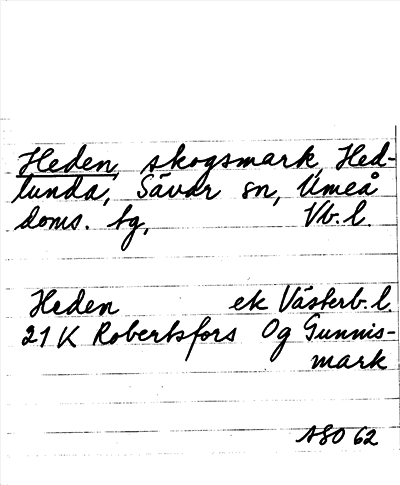 Heden, skogsmark, Hed-
lunda, Sävar sn, Umeå
doms. tg, Vb. l.
Heden ek Västerb. l.
21 K Robertsfors Og Gunnis-
mark
ASO 62